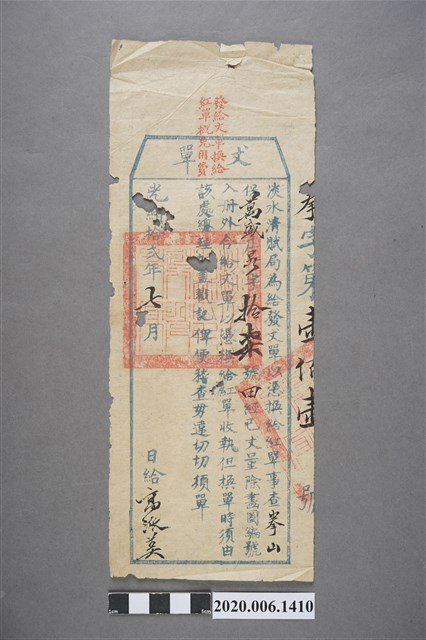 發給丈單換給
紅單概免用費
丈單
淡水清賦局為給發丈單以憑換給紅單事查拳山
保萬盛庄字拾柒號田經已丈量除畫圖編號
入冊外合給丈單以憑換給紅單收執但換單時須由
該處戳記俾便稽查毋違切切須單
光拾弍年七月
日給高泳莫
字第壹佰壹
號
1cm
5cm
2020.006.1410